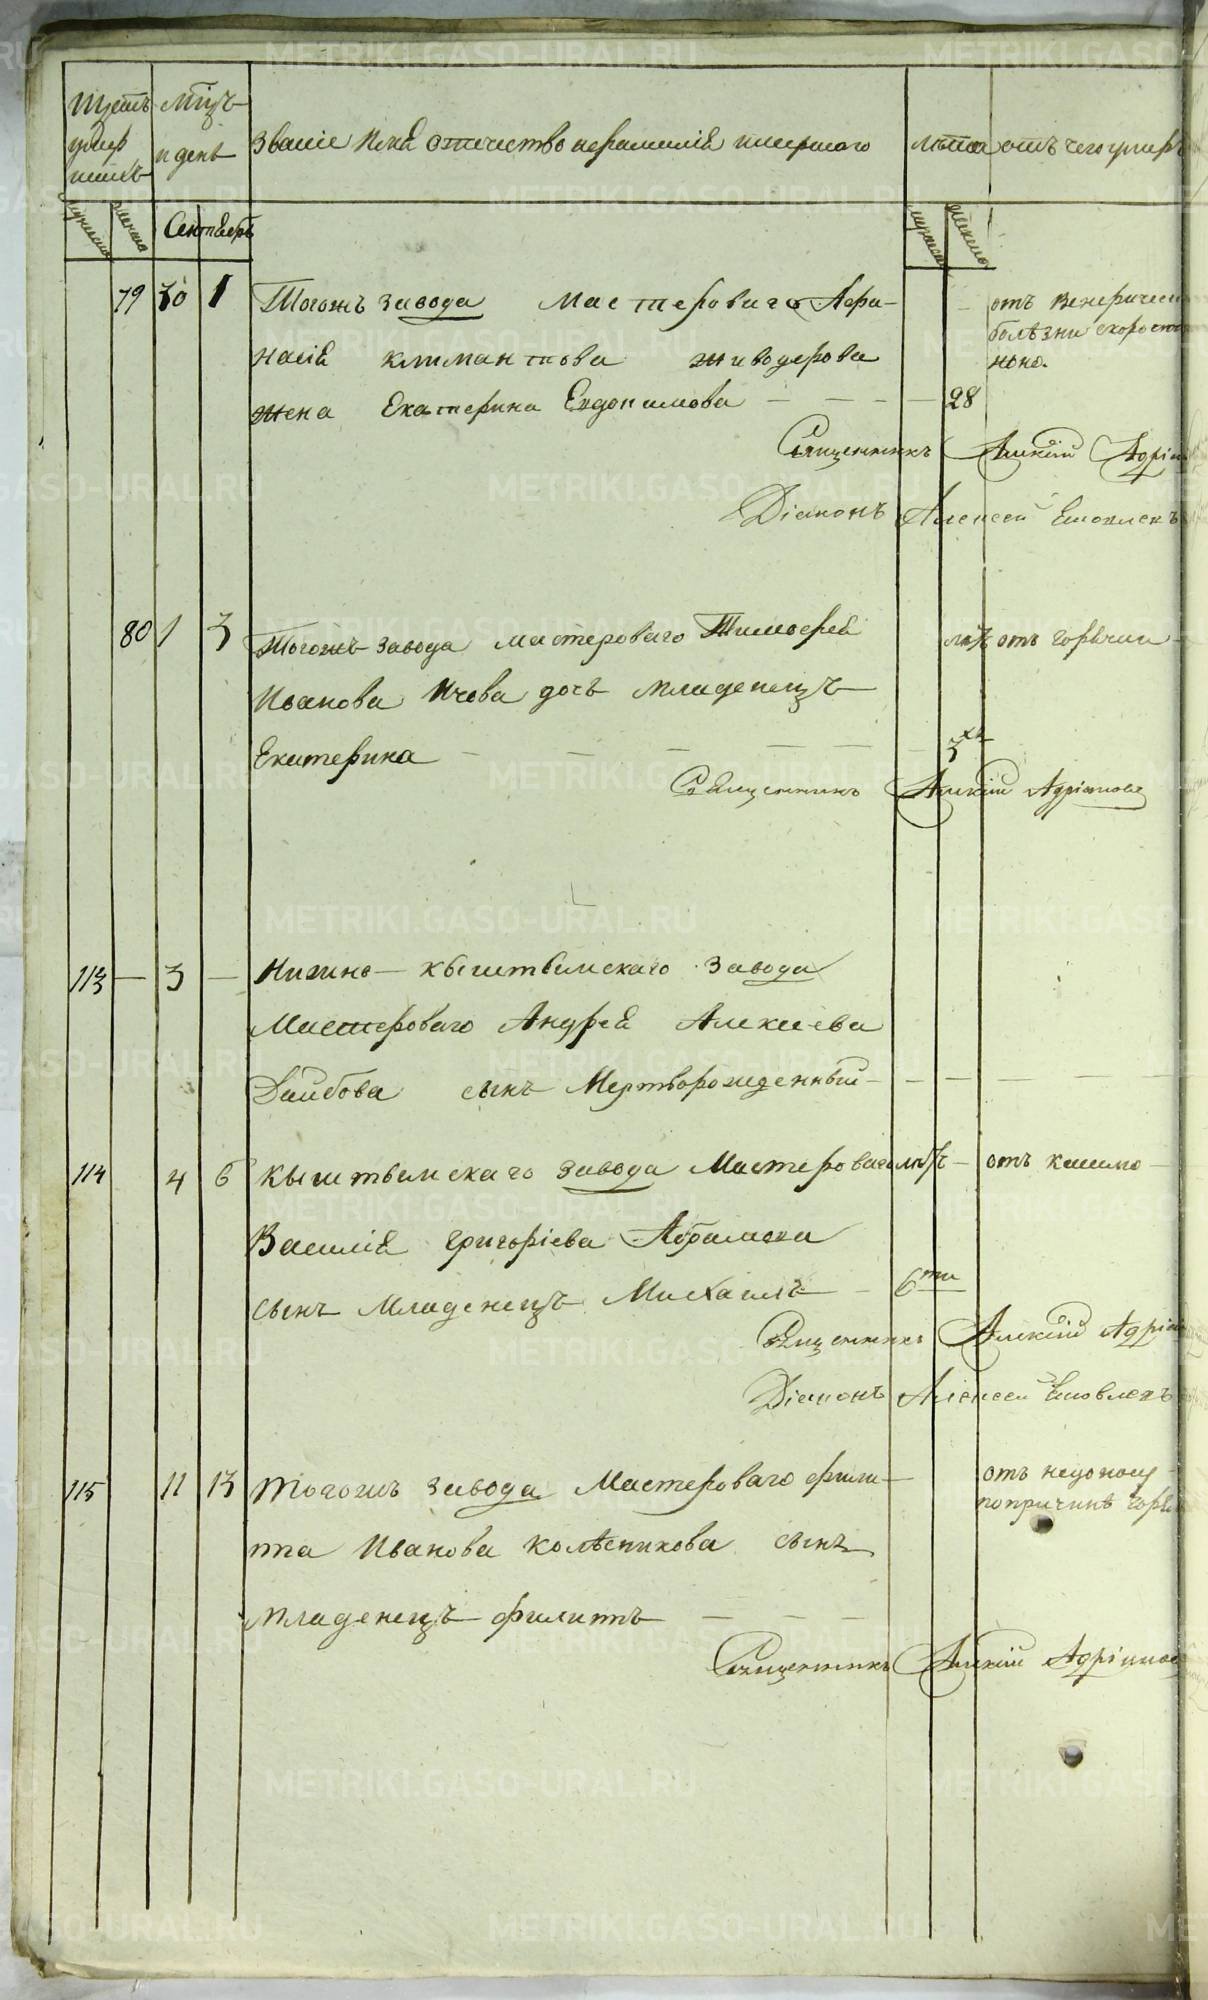 Щетъ умер шихъ
Мцъ и день
Званіе Имя отечество и фамилія умершаго
Лѣта
отъ чего умеръ
мужеска
женска
Сентябрь
мужеска
женска
79 30 1 Тогожъ завода Мастероваго Афа-
насія Климантова Живодерова
жена Екатерина Евдокимова — — — — 28
отъ Венерическ
болѣзни скоропос
но.
Священникъ Алексій Адріан
Діаконъ Алексей Яковлевъ
80 1 3 Тогожъ завода мастероваго Тимофея
Иванова дочь младенецъ
Екатерина — — — — — 3хъ
лѣтъ отъ горячки —
Священникъ Алексій Адріановъ
113 — 3 — Нижне-Кыштымскаго Завода
Мастероваго Андрея Алексеева
сынъ Мертворожденный — — — — —
114 4 6 Кыштымскаго завода Мастероваго лѣтъ — отъ кашлю —
Василія Григоріева Абрамова
сынъ Младенецъ Михаилъ — 6ти
Священникъ Алексій Адріан
Діаконъ Алексей Яковлевъ
115 11 13 Тогожъ завода Мастероваго Фили-
ппа Иванова Колѣсникова сынъ
младенецъ Филиппъ — — —
отъ недонош
по причинѣ
Священникъ Алексій Адріанов
METRIKI.GASO-URAL.RU